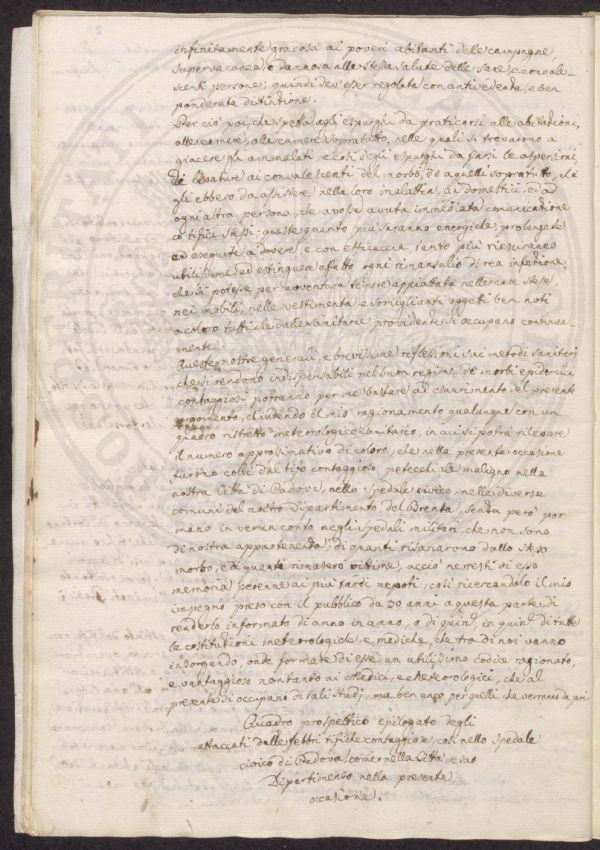 infinitamente gravosa ai poveri abitanti delle campagne,
supervacanea, e dannosa alla stessa salute delle sane, e convale-
scenti persone; quindi dev'esser regolata con antiveduta, e ben
ponderata distinzione.
Per ciò poi, che spetta agli espurghi da praticarsi alle abitazioni,
alle camere, alle camere sopratutto, nelle quali si trovarono a
giacere gli ammalati e così degli espurghi da farsi le aspersioni,
le lavature ai convalescenti del morbo, ed a quelli sopratutto, che
gli ebbero da assistere nella loro malattia, ai domestici, ed a
ogni altra persona, che avesse avuta immediata comunicazione
co' tifici stessi: queste quanto più saranno energiche, prolungate
ed eseguite a dovere, e con efficaccia, tanto più riesciranno
utili, ad estinguere affatto ogni rimasuglio di rea infezione,
che si potesse per avventura tenere appiattata nelle case stesse,
nei mobili, nelle vestimenta, e somiglianti oggetti ben noti
a coloro tutti che dalle sanitarie providenze si occupano continua-
mente.
Queste nostre generali, e brevissime riflessioni sui metodi sanitarj
che si rendono indispensabili nel buon regime de' morbi epidemici
contagiosi potranno per me bastare ad esaurimento del presente
argomento, chiudendo il mio ragionamento qualunque con un
quadro ristretto meteorologico-sanitario, in cui si potrà rilevare
il numero approssimativo di coloro, che nella presente occasione
furono colti dal tifo contaggioso petecchiale maligno nella
nostra Città di Padova, nello spedale civico, nelle diverse
comuni del nostro Dipartimento del Brenta, senza però por
mano in verun conto negli spedali militari, che non sono
di nostra appartenenza; di quanti risanarono dallo stesso
morbo, e di quante rimasero vittime, acciò ne resti di esso
memoria perenne ai più tardi nepoti, così ricercandolo il mio
impegno preso con il pubblico da 30 anni a questa parte, di
renderlo informato di anno in anno, o di quin. in quin. di tutte
le costituzioni meteorologiche, e mediche, che tra di noi vanno
insorgendo, onde formare di esse un utilissimo codice ragionato,
e vantaggioso non tanto ai Medici, e Meteorologici, che al
presente di occupano di tali studj, ma ben anco, per quelli, che verranno da poi
Quadro prospettico epilogato degli
attaccati dalle febbri tifiche contaggiose, così nello spedale
civico di Padova, come nella Città, e suo
Dipartimento nella presente
occasione.